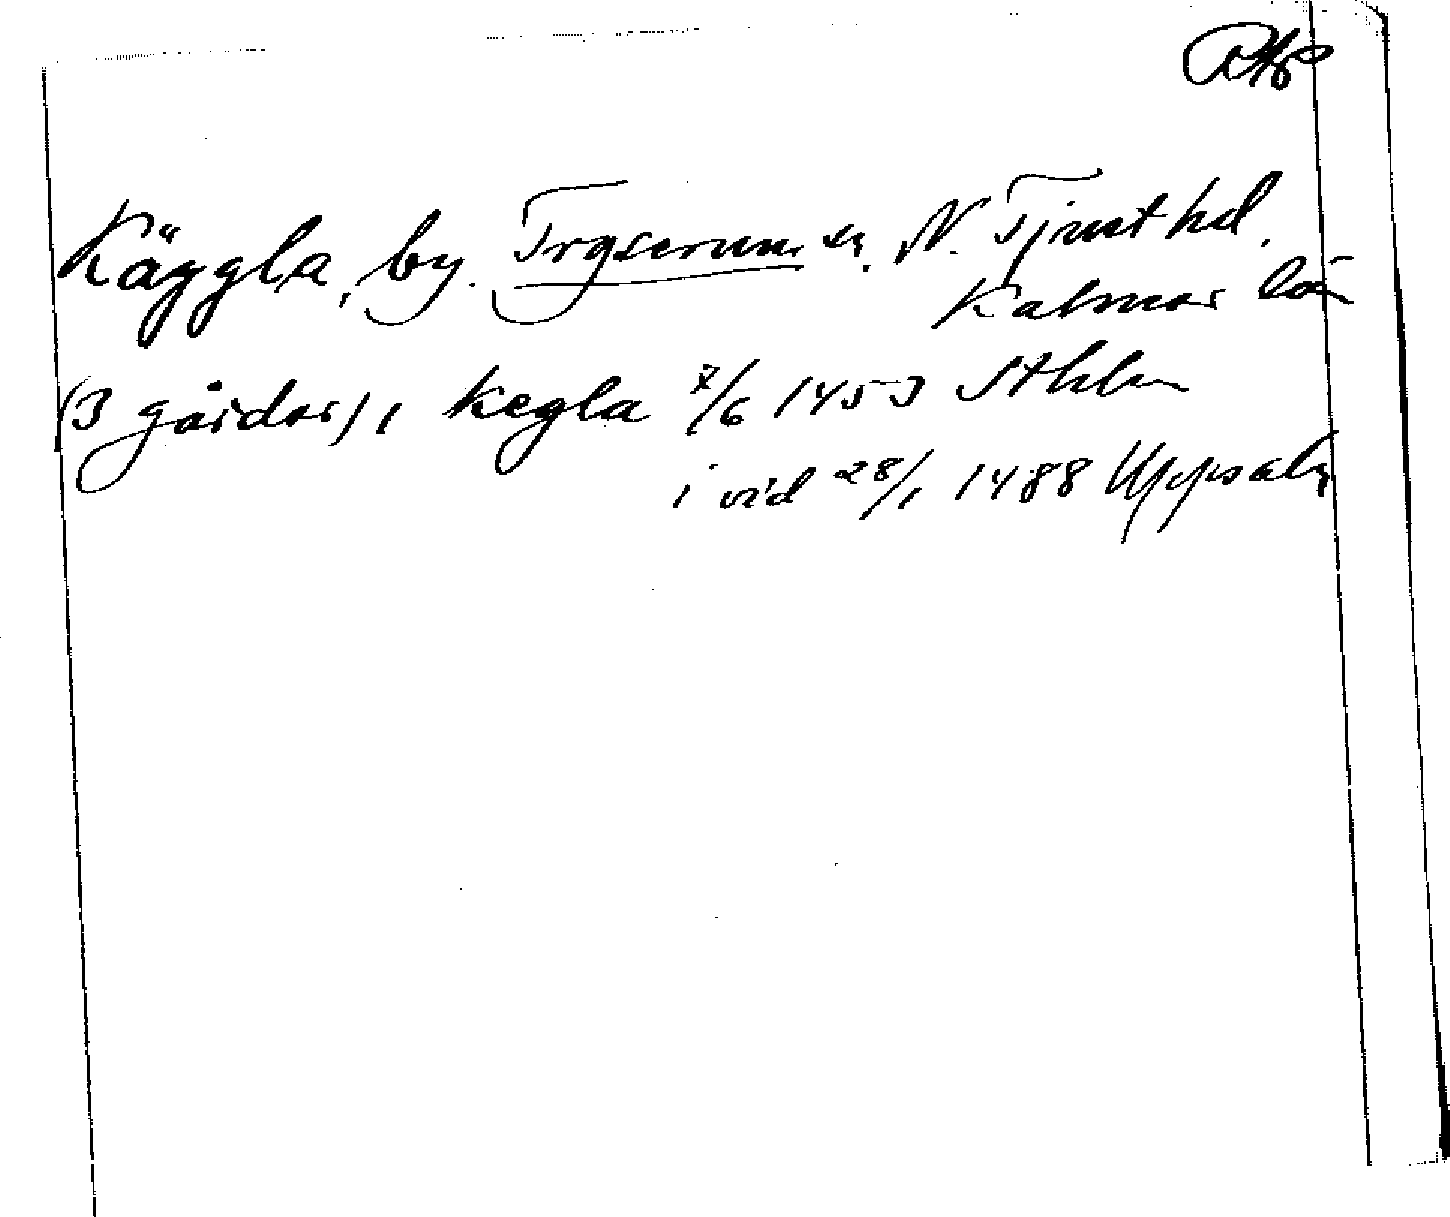 RAP
Käggla, by. Tryserum sn. N. Tjust hd.
Kalmar län
(3 gårdar) i kegla 7/6 1453 Sthlm
i vid 28/1 1488 Uppsala